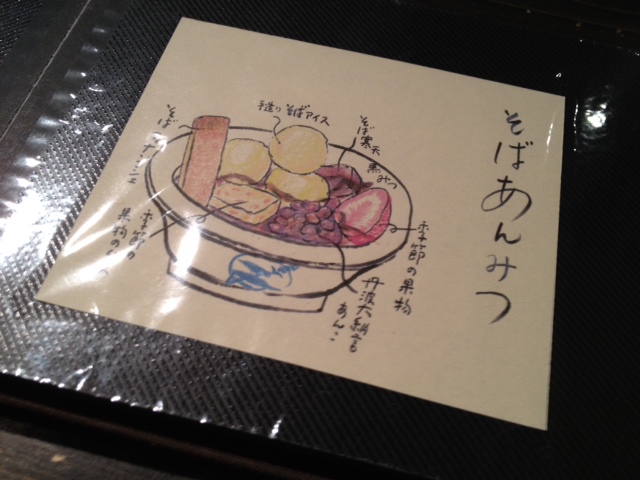 そばあんみつ
手造り そばアイス
そば寒天 黒みつ
そば
季節の果物
丹波大納言
あんこ
季節の
果物の